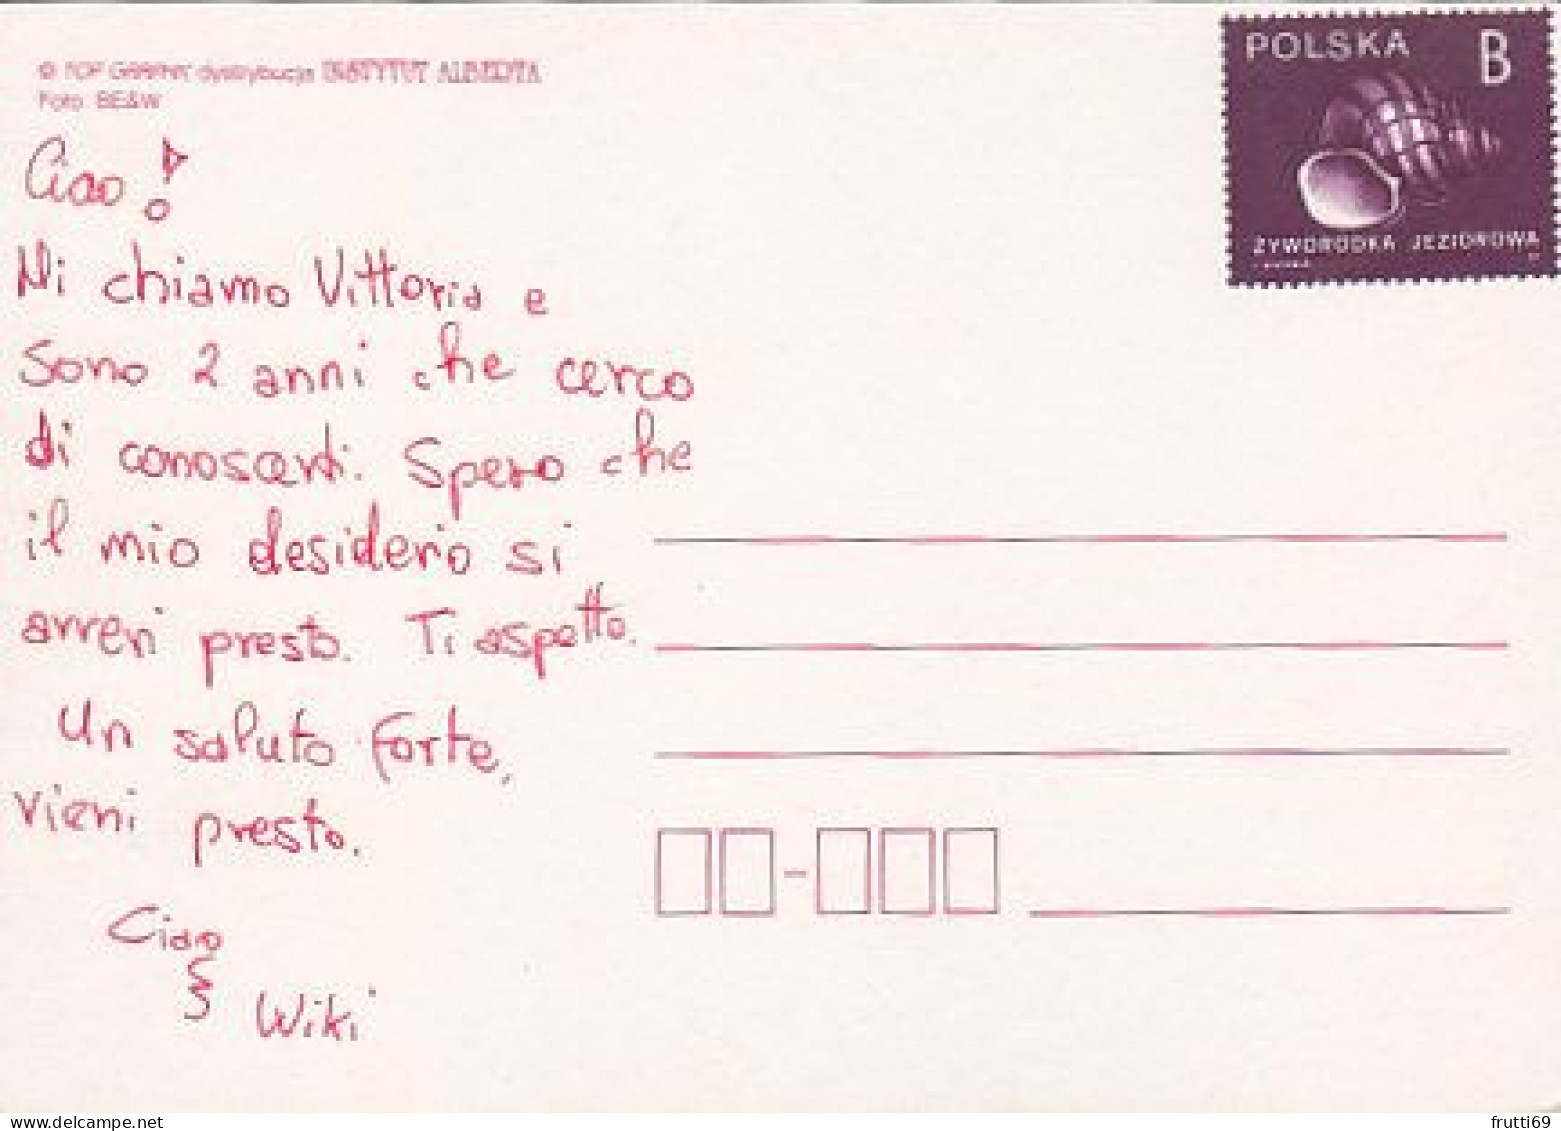 © TOP GRAPHY dystrybucja INSTYTUT ALBERTA
Foto: BE&W
POLSKA B
ŻYWORODKA JEZIOROWA
Ciao!
Mi chiamo Vittoria e
sono 2 anni che cerco
di conoscerti. Spero che
il mio desiderio si
avveri presto. Ti aspetto.
Un saluto forte,
vieni presto.
Ciao
Wiki
frutti69